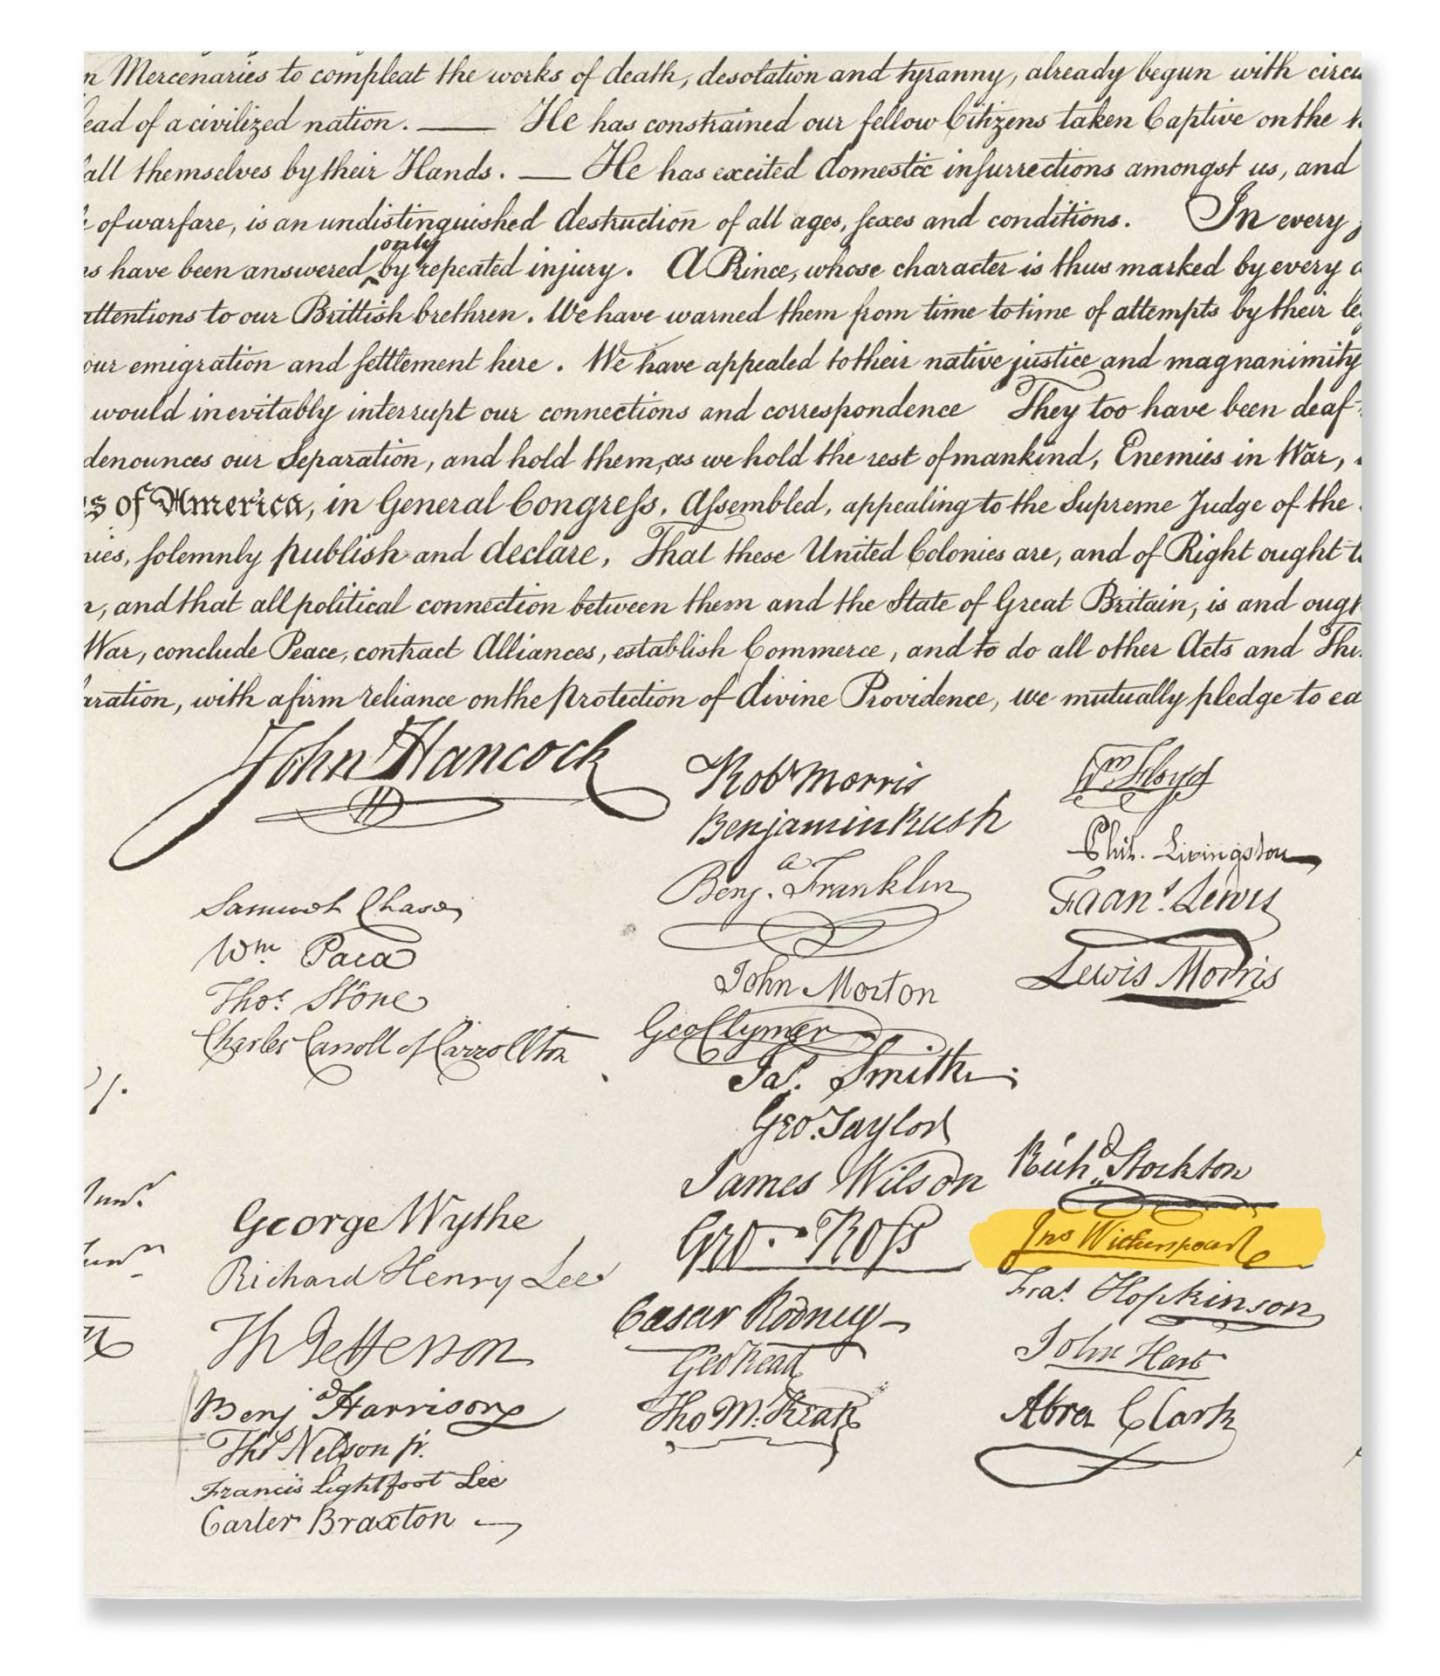 n Mercenaries to compleat the works of death, desolation and tyranny, already begun with circu
ead of a civilized nation. — He has constrained our fellow Citizens taken Captive on the h
all themselves by their Hands. — He has excited domestic insurrections amongst us, and
of warfare, is an undistinguished destruction of all ages, sexes and conditions. In every
only
s have been answered by repeated injury. A Prince, whose character is thus marked by every a
attentions to our Brittish brethren. We have warned them from time to time of attempts by their leg
our emigration and settlement here. We have appealed to their native justice and magnanimity
would inevitably interrupt our connections and correspondence They too have been deaf
denounces our Separation, and hold them, as we hold the rest of mankind, Enemies in War,
s of America, in General Congress, Assembled, appealing to the Supreme Judge of the
nies, solemnly publish and declare, That these United Colonies are, and of Right ought t
n, and that all political connection between them and the State of Great Britain, is and ough
War, conclude Peace, contract Alliances, establish Commerce, and to do all other Acts and Thi
aration, with a firm reliance on the protection of divine Providence, we mutually pledge to ea
John Hancock
Samuel Chase
Wm. Paca
Thos. Stone
Charles Carroll of Carrollton
George Wythe
Richard Henry Lee
Th Jefferson
Benja Harrison
Thos Nelson jr.
Francis Lightfoot Lee
Carter Braxton
Robt Morris
Benjamin Rush
Benja. Franklin
John Morton
Geo Clymer
Jas. Smith
Geo. Taylor
James Wilson
Geo. Ross
Caesar Rodney
Geo Read
Tho M:Kean
Wm Floyd
Phil. Livingston
Frans. Lewis
Lewis Morris
Richd. Stockton
Jno Witherspoon
Fras. Hopkinson
John Hart
Abra Clark